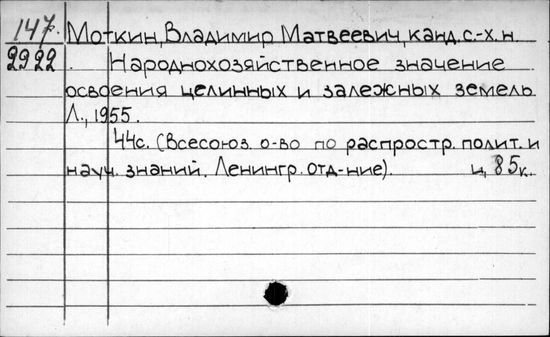 147. Моткин, Владимир Матвеевич, канд. с.-х. н.
2922 Народнохозяйственное значение
освоения целинных и залежных земель
Л., 1955.
44с. (Всесоюз. о-во по распростр. полит. и
науч. знаний. Ленингр. отд-ние). ц. 85к.